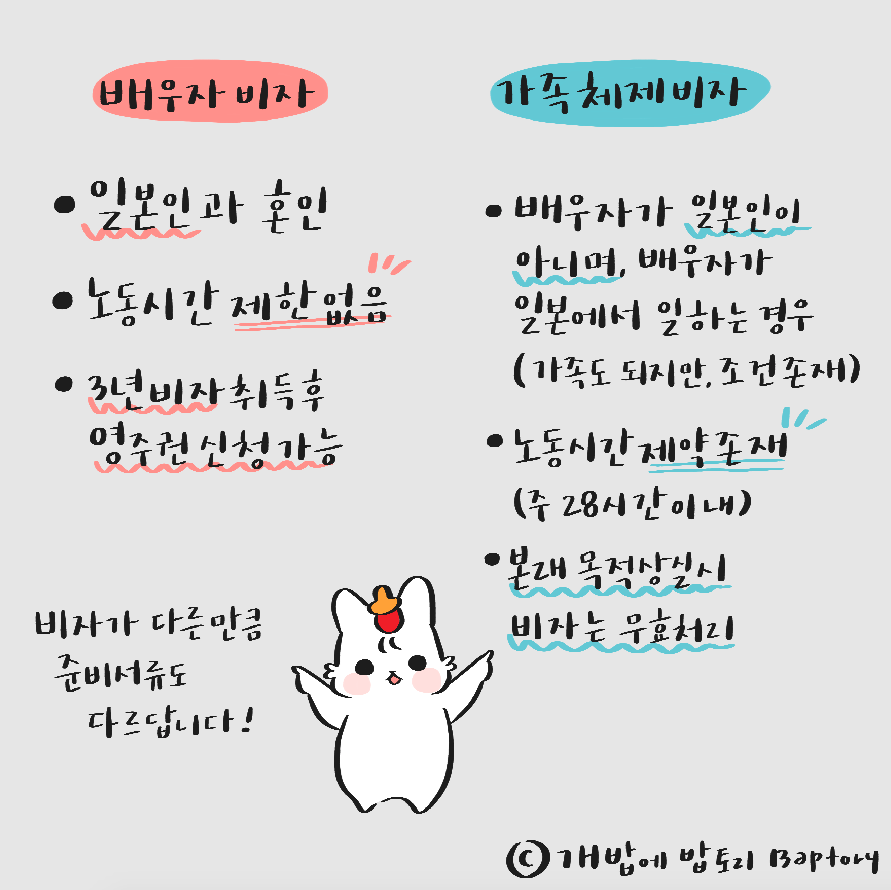 배우자 비자
• 일본인과 혼인
• 노동시간 제한없음
• 3년비자취득후
영주권 신청가능
가족체제비자
• 배우자가 일본인이
아니며, 배우자가
일본에서 일하는 경우
(가족도 되지만, 조건존재)
• 노동시간 제약존재
(주 28시간이내)
• 본래 목적상실시
비자는 무효처리
비자가 다른만큼
준비서류도
다르답니다!
© 개밥에 밥토리 Baptory